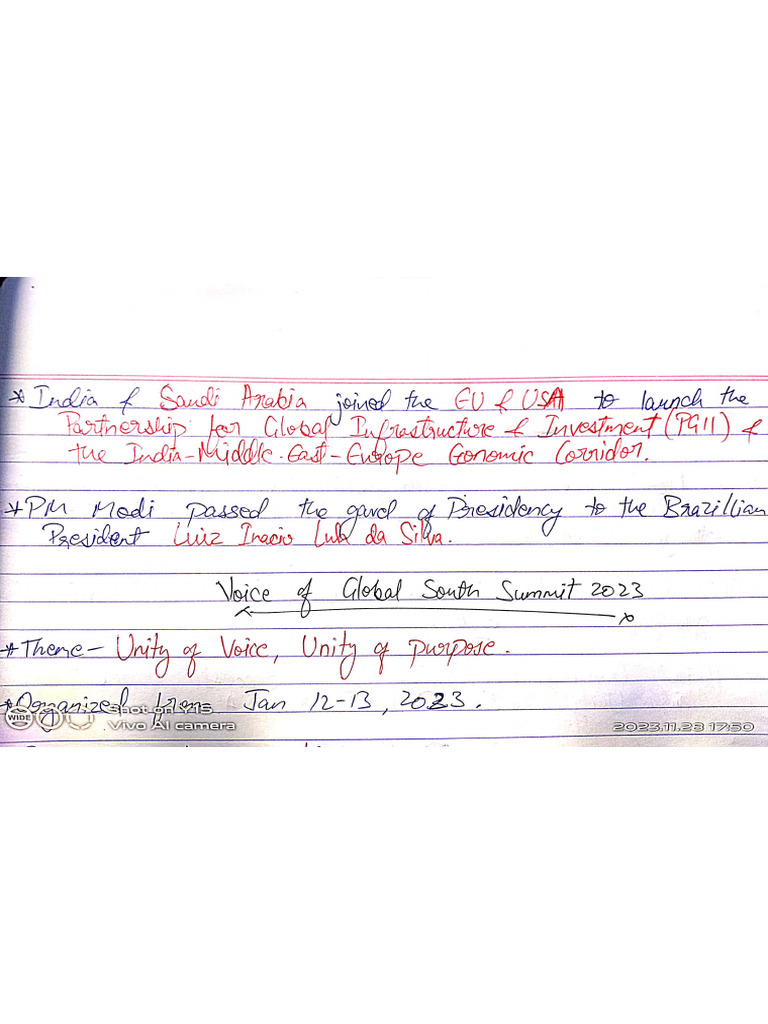 * India & Saudi Arabia joined the EU & USA to launch the
Partnership for Global Infrastructure & Investment (PGII) &
the India-Middle-East-Europe Economic Corridor.
* PM Modi passed the gavel of Presidency to the Brazillian
President Luiz Inacio Lula da Silva.
Voice of Global South Summit 2023
* Theme - Unity of Voice, Unity of purpose.
* Organized from Jan 12-13, 2023.
WIDE Shot on Y15
Vivo AI camera
2023.11.23 17:50